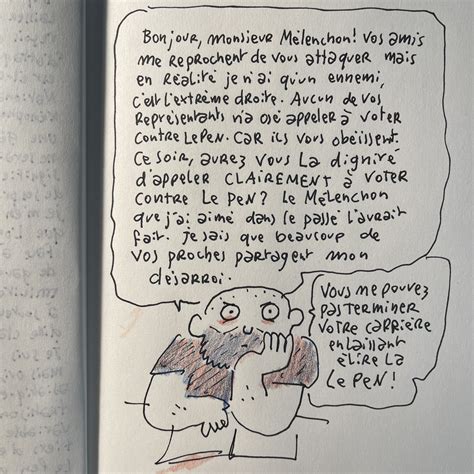 Bonjour, monsieur Mélenchon! Vos amis
me reprochent de vous attaquer mais
en réalité je n'ai qu'un ennemi,
c'est l'extrême droite. Aucun de vos
représentants n'a osé appeler à voter
contre Le Pen. Car ils vous obéissent.
Ce soir, aurez vous la dignité
d'appeler CLAIREMENT à voter
contre Le Pen? Le Mélenchon
que j'ai aimé dans le passé l'aurait
fait. Je sais que beaucoup de
vos proches partagent mon
désarroi.
Vous me pouvez
pas terminer
votre carrière
en laissant
élire la
Le Pen!